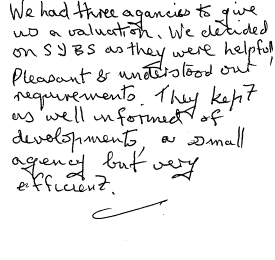 We had three agencies to give
us a valuation. We decided
on SYBS as they were helpful
Pleasant & understood our
requirements. They kept
us well informed of
developments, a small
agency but very
efficient.